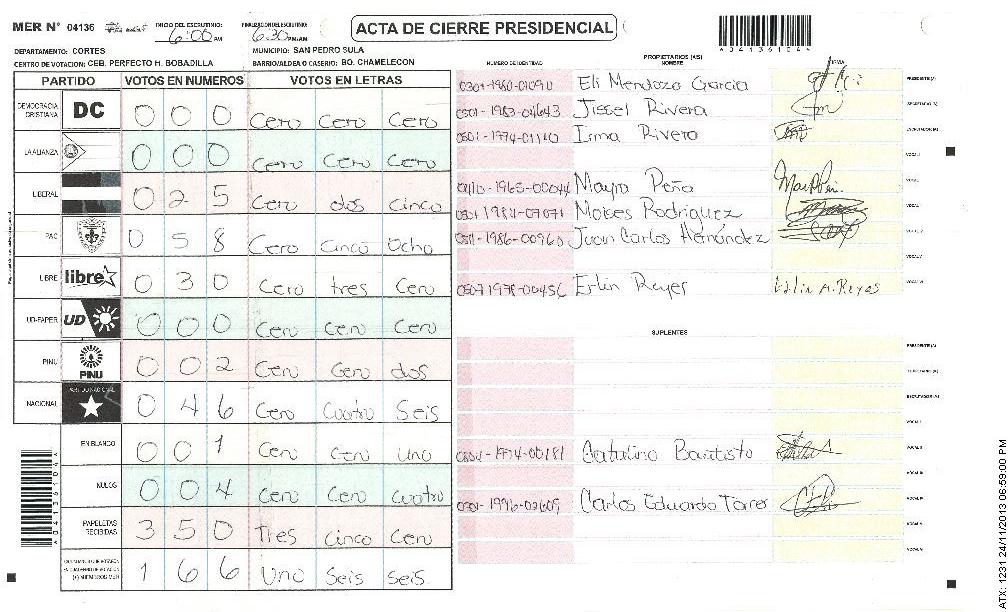 MER N° 04136
INICIO DEL ESCRUTINIO: 6:00 PM
FINALIZACION DEL ESCRUTINIO: 6:30 PM/AM
ACTA DE CIERRE PRESIDENCIAL
04136104
DEPARTAMENTO: CORTES
MUNICIPIO: SAN PEDRO SULA
CENTRO DE VOTACION: CEB. PERFECTO H. BOBADILLA
BARRIO/ALDEA O CASERIO: BO. CHAMELECON
PARTIDO VOTOS EN NUMEROS VOTOS EN LETRAS
DEMOCRACIA CRISTIANA DC 0 0 0 Cero Cero Cero
LA ALIANZA 0 0 0 Cero Cero Cero
LIBERAL 0 2 5 Cero dos cinco
PAC 0 5 8 Cero cinco Ocho
LIBRE libre 0 3 0 Cero tres Cero
UD-FAPER UD 0 0 0 Cero Cero Cero
PINU PINU 0 0 2 Cero Cero dos
NACIONAL PARTIDO NACIONAL 0 4 6 Cero Cuatro Seis
EN BLANCO 0 0 1 Cero Cero uno
NULOS 0 0 4 Cero Cero cuatro
PAPELETAS RECIBIDAS 3 5 0 Tres Cinco Cero
1 6 6 Uno Seis Seis
NUMERO DE IDENTIDAD
PROPIETARIOS (AS)
NOMBRE
FIRMA
0301-1980-01090 Eli Mendoza Garcia PRESIDENTE(A)
0501-1983-04643 Jissel Rivera SECRETARIO(A)
0501-1974-01110 Irma Rivera ESCRUTADOR(A)
VOCAL I
Mayra Peña
Moises Rodriguez
0511-1986-00960 Juan Carlos Hernández
VOCAL V
Erlin Reyes Erlin A. Reyes
SUPLENTES
PRESIDENTE(A)
SECRETARIO(A)
ESCRUTADOR(A)
VOCAL I
Catarino Bautista
VOCAL III
Carlos Eduardo Torres
VOCAL V
ATX: 1231 24/11/2013 06:59:00 PM